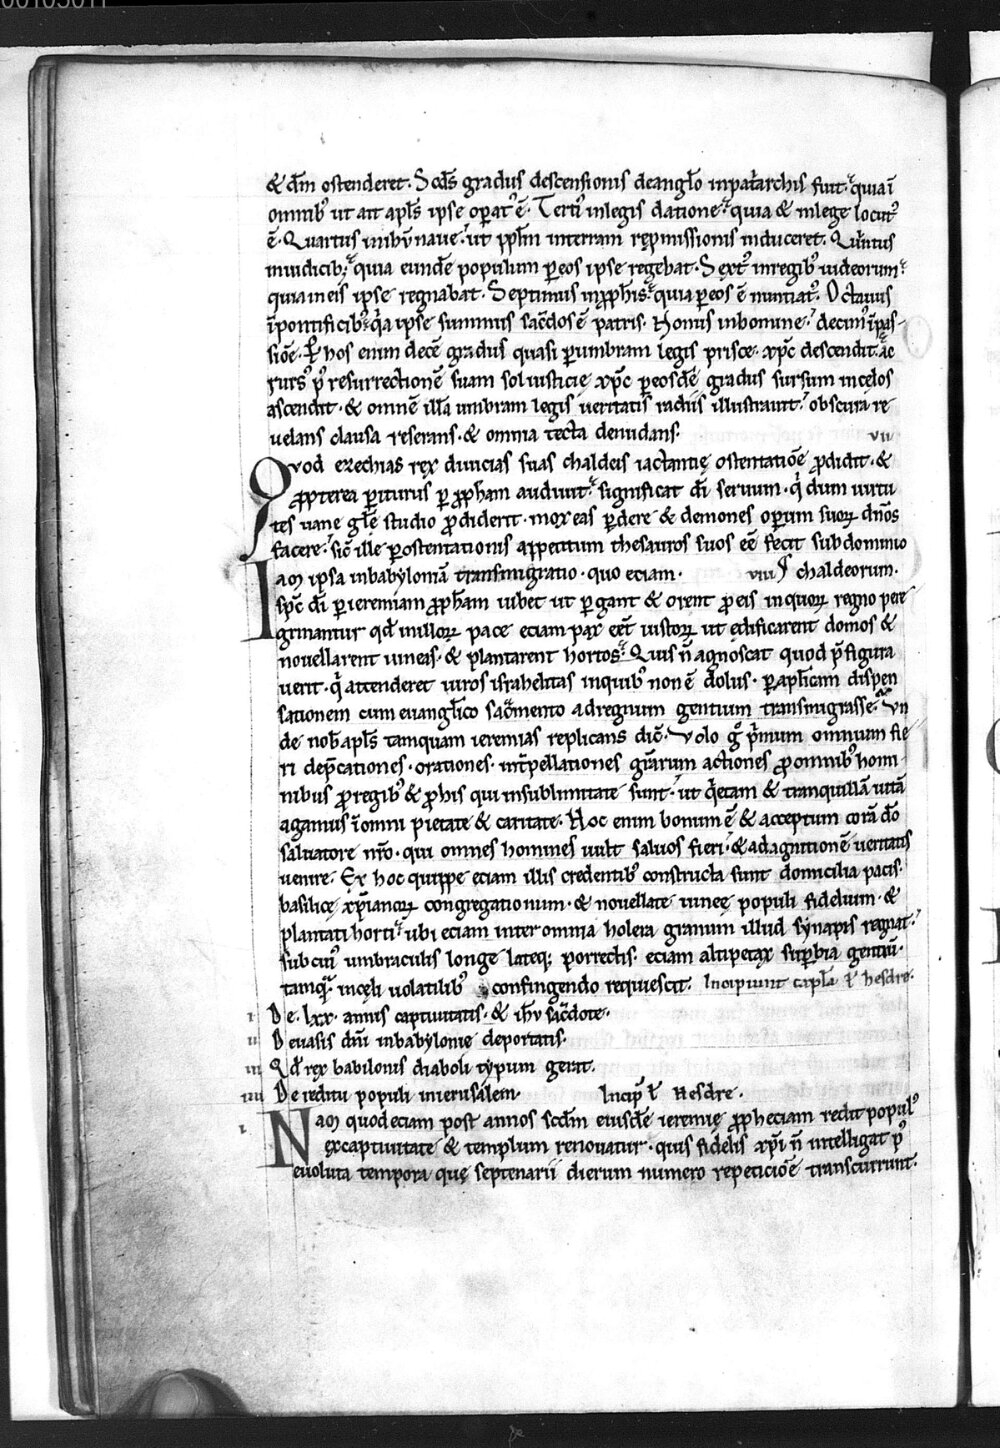 & dm̄ ostenderet. Scds̄ gradus descensionis deanglo inpatarchis fuit. quia ī
omnib; ut ait apls̄ ipse operat' ē. Terti' inlegis datione. quia & inlege locut'
ē. Quartus inihū naue. ut ppl̄m interram repmissionis induceret. Quintus
iniudicib; quia eundē populum peos ipse regebat. Sext' inregib; uideorum.
quia ineis ipse regnabat. Septimus inpphis. quia peos ē nuntiat'. Octauus
īpontificib; qa ipse summus sac̄dos ē patris. Nonus inhomine. decim' īpas-
siōe. P hos enim decē gradus quasi pumbram legis prisce. xpc̄ descendit. ac
rurs' p' resurrectionē suam sol iusticię xpc̄ peosdē gradus sursum incelos
ascendit. & omnē illā umbram legis ueritatis radiis illustrauit. obscura re
uelans clausa reserans. & omnia tecta denudans. vii
Quod ezechias rex diuicias suas chaldeis iactantię ostentatiōe pdidit. &
ppterea periturus p pph̄am audiuit. significat dī seruum. q̄ dum uirtu
tes uane glē studio pdiderit. mox eas pdere & demones operum suorꝝ dn̄os
facere. sic̄ ille postentationis appetitum thesauros suos eē fecit subdominio
Iam ipsa inbabyloniā transmigratio. quo eciam. viii chaldeorum.
spc̄ dī pieremiam pph̄am iubet ut pgant & orent p eis inquorꝝ regno pere
grinantur qd̄ inillorꝝ pace eciam pax eēt iustorꝝ ut edificarent domos &
nouellarent uineas. & plantarent hortos. Quis n̄ agnoscat quod pfigura
uerit. q̄ attenderet uiros israhelitas inquib; non ē dolus. p aplicam dispen
sationem cum euanglico sacmento adregnum gentium transmigrasse. Vn
de nob̄ apls̄ tamquam ieremias replicans dic̄. Volo g̊ pimum omnium fie
ri depcationes. orationes. intpellationes gr̄arum actiones p omnib; homi-
nibus p regib; & p his qui insublimitate sunt. ut qetam & tranquillā uitā
agamus īomni pietate & caritate. Hoc enim bonum ē & acceptum corā dō
saluatore nr̄o. qui omnes homines uult saluos fieri. & adagnitionē ueritatis
uenire. Ex hoc quippe eciam illis credentib; constructa sunt domicilia pacis.
basilicę xp̄ianorꝝ congregationum. & nouellate uineę populi fidelium. &
plantati horti. ubi eciam inter omnia holera granum illud synapis regnat.
subcui' umbraculis longe lateq; porrectis. eciam altipetax supbia gentiū.
tamq̄. inceli uolatilib; confingendo requiescit. Incipiunt capl̄a l̄ hesdre.
i De. lxx. annis captiuitatis. & ihu sac̄dote.
ii Deuasis dn̄i inbabylonię deportatis.
iii Qd̄ rex babilonis diaboli typum gerit.
iiii De reditu populi inierusalem. Incip̄ l̄ Hesdre.
i. Nam quod eciam post annos scdm̄ eiusdē ieremię ppheciam redit popul'
excaptiuitate & templum renouatur. quis fidelis xpī n̄ intelligat p'
euoluta tempora quę septenarii dierum numero repeticiōe transcurrunt.